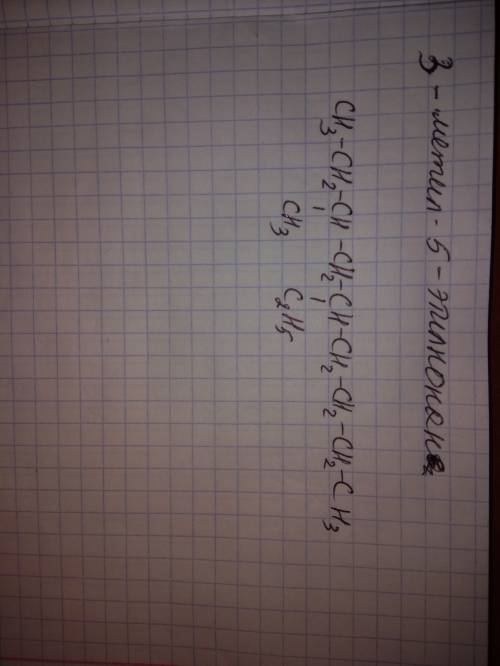 3 - метил - 5 - этилнонан
CH₃-CH₂-CH-CH₂-CH-CH₂-CH₂-CH₂-CH₃
CH₃ C₂H₅